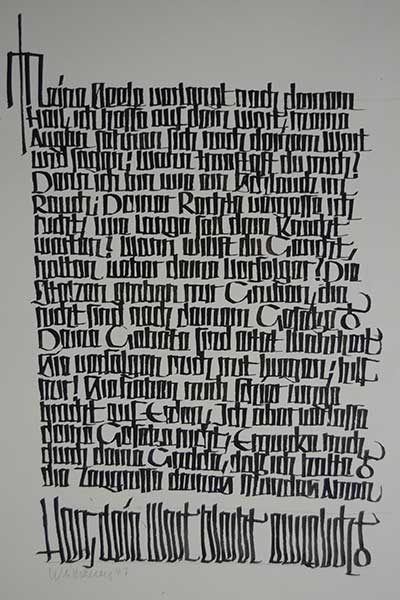 Meine Seele verlanget nach deinem
Heil, ich hoffe auf dein Wort; meine
Augen sehnen sich nach deinem Wort
und sagen: Wann tröstest du mich?
Denn ich bin wie ein Schlauch im
Rauch; Deiner Rechte vergesse ich
nicht, wie lange soll dein Knecht
warten? Wann willst du Gericht
halten ueber deine verfolger? Die
Stolzen graben mir Gruben, die
nicht sind nach deinem Gesetz
Deine Gebote sind eitel Wahrheit
Sie verfolgen mich mit luegen; hilf
mir! Sie haben mich schier umge
bracht auf Erden; Ich aber verlasse
deine Gesetze nicht; Erquicke mich
durch deine Gnade, daß ich halte
die Zeugnisse deines Mundes Amen
Herr, dein Wort bleibt ewiglich